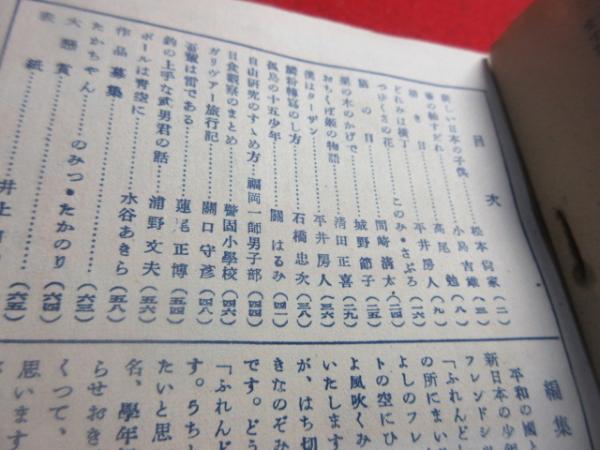 目次
新しい日本の子供 松本寅家 (二)
春の軸すだれ 小島吉雄 (三)
晴き日 高尾勉 (八)
どれみは横丁 平井房人 (九)
つゆくさの花 このみ・さぶろ (一六)
猫の目 間崎清太 (二〇)
栗の木のかげで 城野節子 (二五)
おちくぼ姫の物語 清田正喜 (二九)
僕はターザン 平井房人 (三六)
鱗粉轉寫のし方 石橋忠次 (三八)
孤島の十五少年 關はるみ (四一)
自由研究のすゝめ方 福岡一師男子部 (四四)
日食觀察のまとめ 警固小學校 (四六)
ガリヴァー旅行記 關口守彦 (四八)
吾輩は雷である 蓮尾正博 (五四)
釣の上手な武男君の話 浦野文夫 (五六)
ボールは靑空に 水谷あきら (五八)
作品募集
たかちやん のみつ・たかのり (六三)
大懸賞 (六四)
表紙 井上 (六五)
編集
平和の國と
新日本の少年
フレンドシ
「ふれんどし
の所にまい
よしのフレ
トの空にひ
よ風吹くみ
いたします
が、はち切
きなのぞみ
です。どう
「ふれんど
す。うちし
たいと思
名、學年
らせおき
くつて、
思います